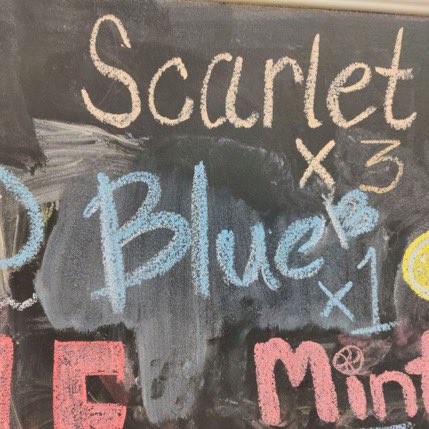 Scarlet
x3
Blue
x1
Mint